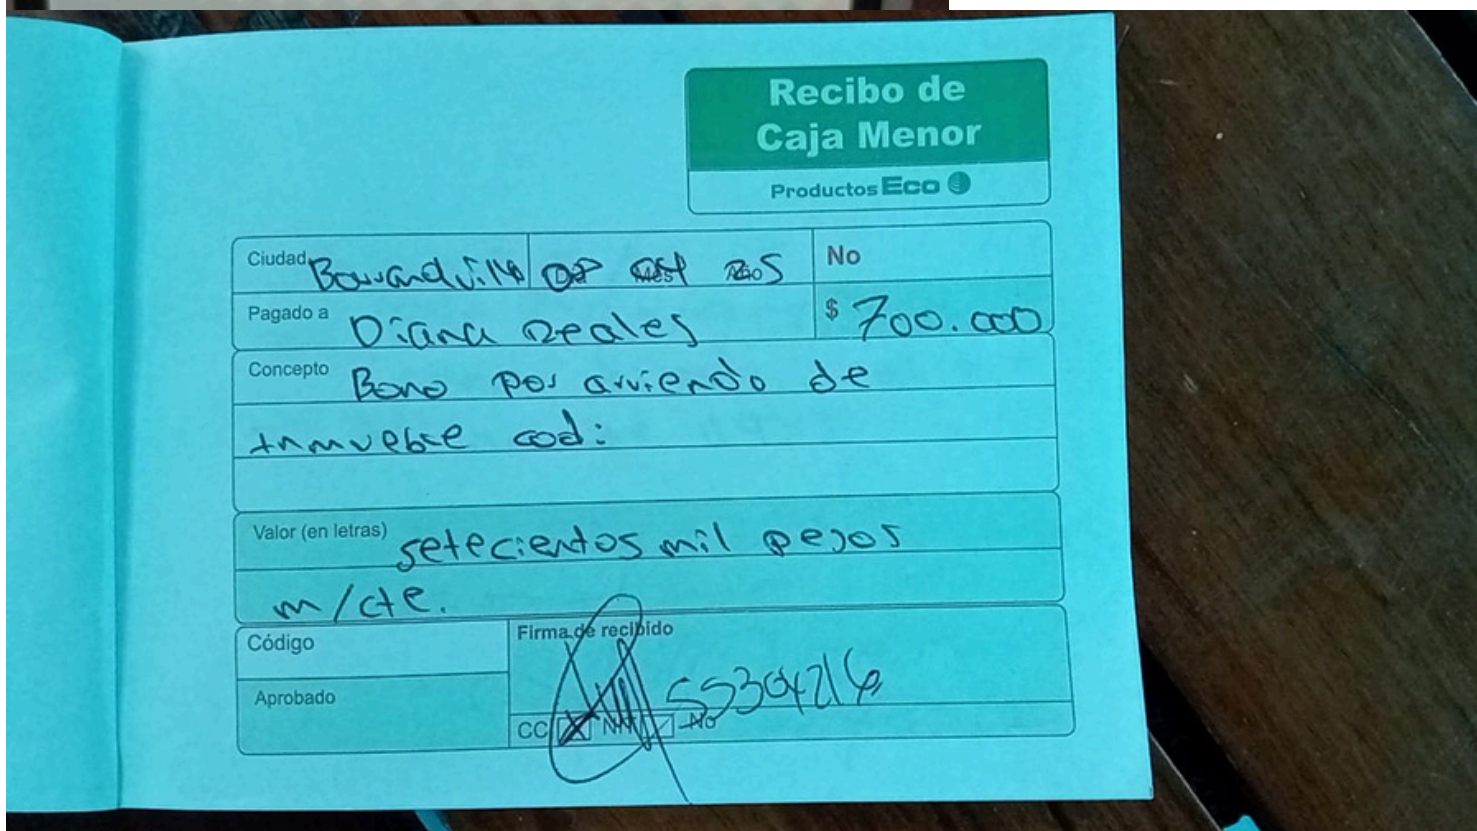 Recibo de
Caja Menor
Productos Eco
Ciudad Barranquilla 08 04 25 No
Pagado a Diana Reales $ 700.000
Concepto Bono por arriendo de
inmueble cod:
Valor (en letras) setecientos mil pesos
m/cte.
Código
Firma de recibido
Aprobado
55304216
CC X NIT No